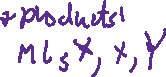 + products!
ML, X, x, Y